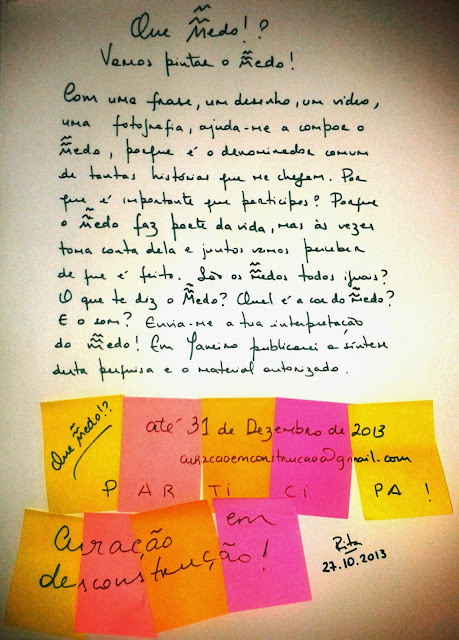 Que Medo!?
Vamos pintar o Medo!
Com uma frase, um desenho, um vídeo,
uma fotografia, ajuda-me a compor o
Medo, porque é o denominador comum
de tantas histórias que me chegam. Por
que é importante que participes? Porque
o Medo faz parte da vida, mas às vezes
toma conta dela e juntos vamos perceber
de que é feito. São os Medos todos iguais?
O que te diz o Medo? Qual é a cor do Medo?
E o som? Envia-me a tua interpretação
do Medo! Em Janeiro publicarei a síntese
desta pesquisa e o material autorizado.
Que Medo!?
até 31 de Dezembro de 2013
curacaoemconstrucao@gmail.com
PARTiCiPA!
Curação em
desconstrução!
Rita
27.10.2013